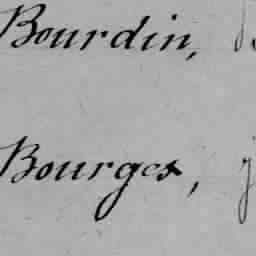 Bourdin,
Bourges,